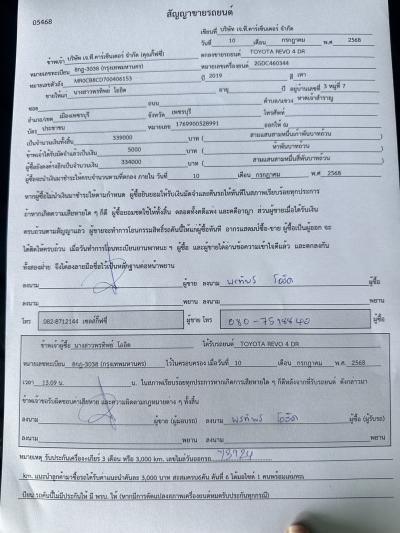 สัญญาขายรถยนต์
05468
เขียนที่ บริษัท เจ.ที.คาร์เซ็นเตอร์ จำกัด
วันที่ 10 เดือน กรกฎาคม พ.ศ. 2568
ข้าพเจ้า บริษัท เจ.ที.คาร์เซ็นเตอร์ จำกัด (คุณกี๊ฟซี่) ตกลงขายรถยนต์ TOYOTA REVO 4 DR
หมายเลขทะเบียน 8กฎ-3038 (กรุงเทพมหานคร) หมายเลขเครื่องยนต์ 2GDC460344
หมายเลขตัวถัง MR0CB8CD700406153 ปี 2019 สี เทา
ขายให้แก่ นางสาวพรทิพย์ โอฮิด อายุ ปี อยู่บ้านเลขที่ 3 หมู่ที่ 7
ซอย ถนน ตำบล/แขวง หาดเจ้าสำราญ
อำเภอ/เขต เมืองเพชรบุรี จังหวัด เพชรบุรี โทรศัพท์
บัตร ประชาชน หมายเลข 1769900528991 ออกให้ ณ
เป็นจำนวนเงินทั้งสิ้น 339000 บาท ( สามแสนสามหมื่นเก้าพันบาทถ้วน )
ข้าพเจ้าได้รับมัดจำแล้วเป็นเงิน 5000 บาท ( ห้าพันบาทถ้วน )
ผู้ซื้อยังคงค้างอีกเป็นจำนวนเงิน 334000 บาท ( สามแสนสามหมื่นสี่พันบาทถ้วน )
ผู้ซื้อจะนำเงินมาชำระให้ครบจำนวนตามที่ตกลง ภายใน วันที่ 10 เดือน กรกฎาคม พ.ศ. 2568
หากผู้ซื้อไม่นำเงินมาชำระให้ตามกำหนด ผู้ซื้อยินยอมให้ริบเงินมัดจำและคืนรถให้ทันทีในสภาพเรียบร้อยทุกประการ
ถ้าหากเกิดความเสียหายใด ๆ ก็ดี ผู้ซื้อยอมชดใช้ให้ทั้งสิ้น ตลอดทั้งคดีแพ่ง และคดีอาญา ส่วนผู้ขายเมื่อได้รับเงิน
ครบถ้วนตามสัญญาแล้ว ผู้ขายจะทำการโอนกรรมสิทธิ์รถคันนี้ให้แก่ผู้ซื้อทันที อากรแสตมป์ซื้อ-ขาย ผู้ซื้อเป็นผู้ออก จะ
ได้คิดให้ครบถ้วน เมื่อวันทำการโอนทะเบียนยานพาหนะ ฯ ผู้ซื้อ และผู้ขายได้อ่านข้อความเข้าใจดีแล้ว และตกลงกัน
ทั้งสองฝ่าย จึงได้ลงลายมือชื่อไว้เป็นหลักฐานต่อหน้าพยาน
ลงนาม ผู้ขาย ลงนาม พรทิพย์ โอฮิด ผู้ซื้อ
ลงนาม พยาน ลงนาม พยาน
โทร 082-8712144 เซลล์กี๊ฟซี่ ผู้ขาย โทร ผู้ซื้อ
ข้าพเจ้าผู้ซื้อ นางสาวพรทิพย์ โอฮิด ได้รับรถยนต์ TOYOTA REVO 4 DR
หมายเลขทะเบียน 8กฎ-3038 (กรุงเทพมหานคร) ไว้ในครอบครอง เมื่อวันที่ 10 เดือน กรกฎาคม พ.ศ. 2568
เวลา 13.09 น. น. ในสภาพเรียบร้อยทุกประการหากเกิดการเสียหายใด ๆ ก็ดีหลังจากที่รับรถยนต์ ดังกล่าวมา
ข้าพเจ้าขอรับผิดชอบค่าเสียหาย และความผิดตามกฎหมายต่าง ๆ ทั้งสิ้น
ลงนาม ผู้ขาย (ผู้มอบรถ) ลงนาม พรทิพย์ โอฮิด ผู้ซื้อ (ผู้รับรถ)
ลงนาม พยาน ลงนาม พยาน
หมายเหตุ รับประกันเครื่องเกียร์ 3 เดือน หรือ 3,000 km. เลขไมล์วันออกรถ
km. แนะนำลูกค้ามาซื้อรถได้รับค่าแนะนำคันละ 3,000 บาท สะสมครบ6คัน คันที่ 6 ได้มอไซค์ 1 คันพร้อม
รถคันนี้ไม่มีประกันให้ มี พรบ. ให้ (หากมีการดัดแปลงสภาพเครื่องยนต์หมดรับประกันทุกกรณี)